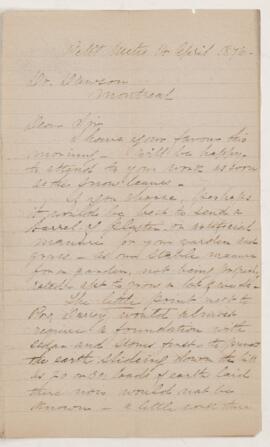 Petit Metis 10 April 1876
Dr. Dawson
Montreal
Dear Sir
I have your favour this
morning. I will be happy
to attend to your work as soon
as the snow leaves.
If you choose, perhaps
it would be best to send a
barrel of plaster or artificial
manure for your garden and
grass. as our stable manure
for a garden, not being
apt to grow a lot of weeds.
The little point next to
would almost
require a foundation with
and stones first to prevent
the earth sliding down the hill
as 20 or 30 loads of earth laid
there now would not be
known - a little work there